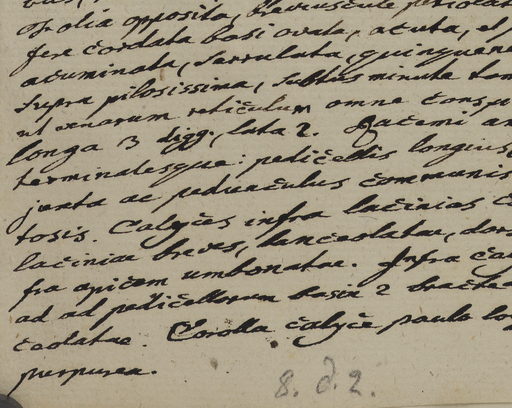 Folia opposita, breviuscule petiolat
fere cordata basi ovata, acuta, el
acuminata, serrulata, quinquene
supra pilosissima, subtus minute tom
ut venarum reticulum omne consp
longa 3 digg., lata 2. Racemi ax
terminalesque: pedicellis longius
juxta ac pedunculus communis
tosis. Calyces infra lacinias
laciniae breves, lanceolatae, dors
fra apicem umbonatae. Infra ca
ad ad pedicellorum basin 2 bractea
ceolatae. Corolla calyce paulo lo
purpurea.
8. d. 2.